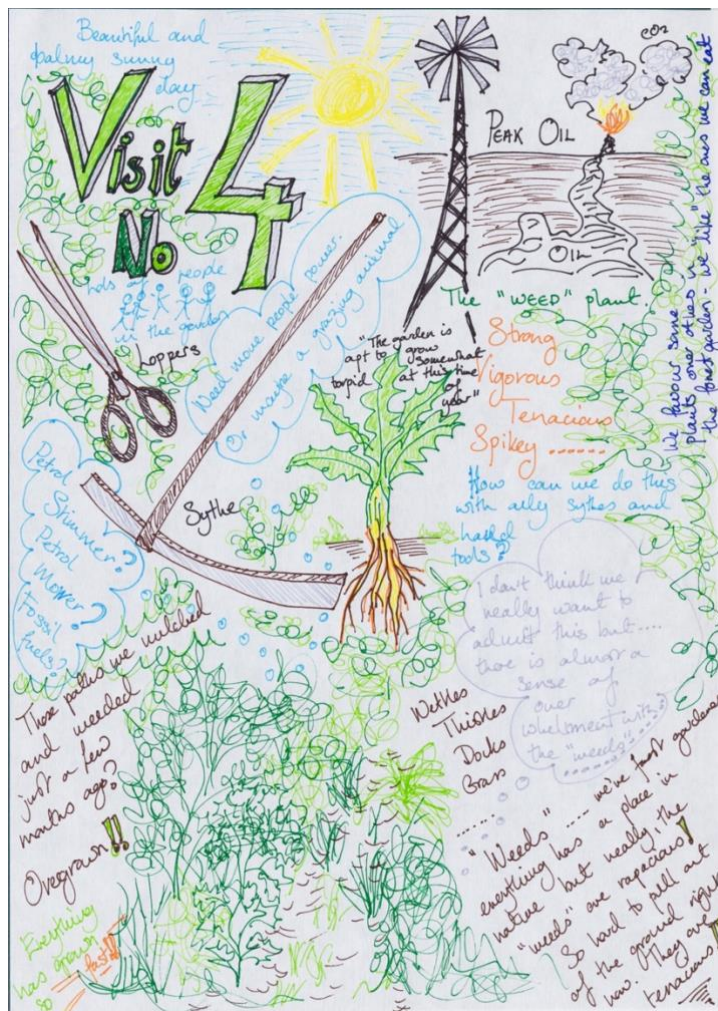 Beautiful and
balmy sunny
day
Visit
No
4
CO2
PEAK OIL
OIL
We favour some
plants over others in
the forest garden - we "like" the ones we can eat
Lots of people
in the garden
Loppers
Need more people power.
Or maybe a grazing animal
"The garden is
apt to grow somewhat
torpid at this time
of
year"
The "WEED" plant.
Strong
Vigorous
Tenacious
Spikey ......
How can we do this
with only sythes and
hand
tools?
Petrol
Strimmer?
Petrol
Mower?
Fossil
fuels?
Sythe
I don't think we
really want to
admit this but....
there is almost a
sense of
over
whelsment with
the "weeds"
.........
These paths we mulched
and weeded
just a few
months ago?
Overgrown!!
Everything
has grown
so fast!!
Nettles
Thistles
Docks
Grass
......
"Weeds" .... we've forest gardeners
everything has a place in
nature but really, the
"weeds" are rapacious!
So hard to pull out
of the ground right
now. They are
tenacious!!